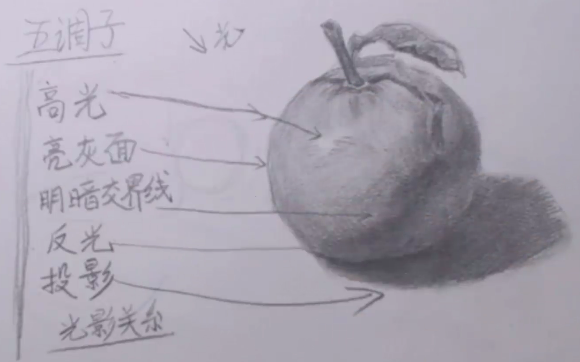 五调子
光
高光
亮灰面
明暗交界线
反光
投影
光影关系